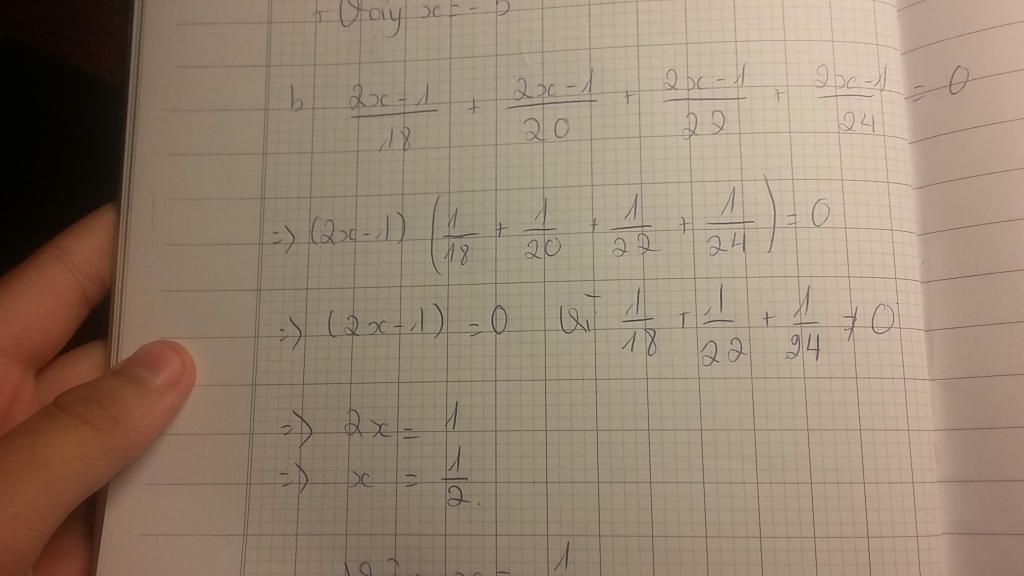 + Vậy x = - 5
b 2x-1/18 + 2x-1/20 + 2x-1/22 + 2x-1/24 = 0
=> (2x-1) (1/18 + 1/20 + 1/22 + 1/24) = 0
=> (2x-1) = 0 Vì 1/18 + 1/22 + 1/24 ≠ 0
=> 2x = 1
=> x = 1/2.